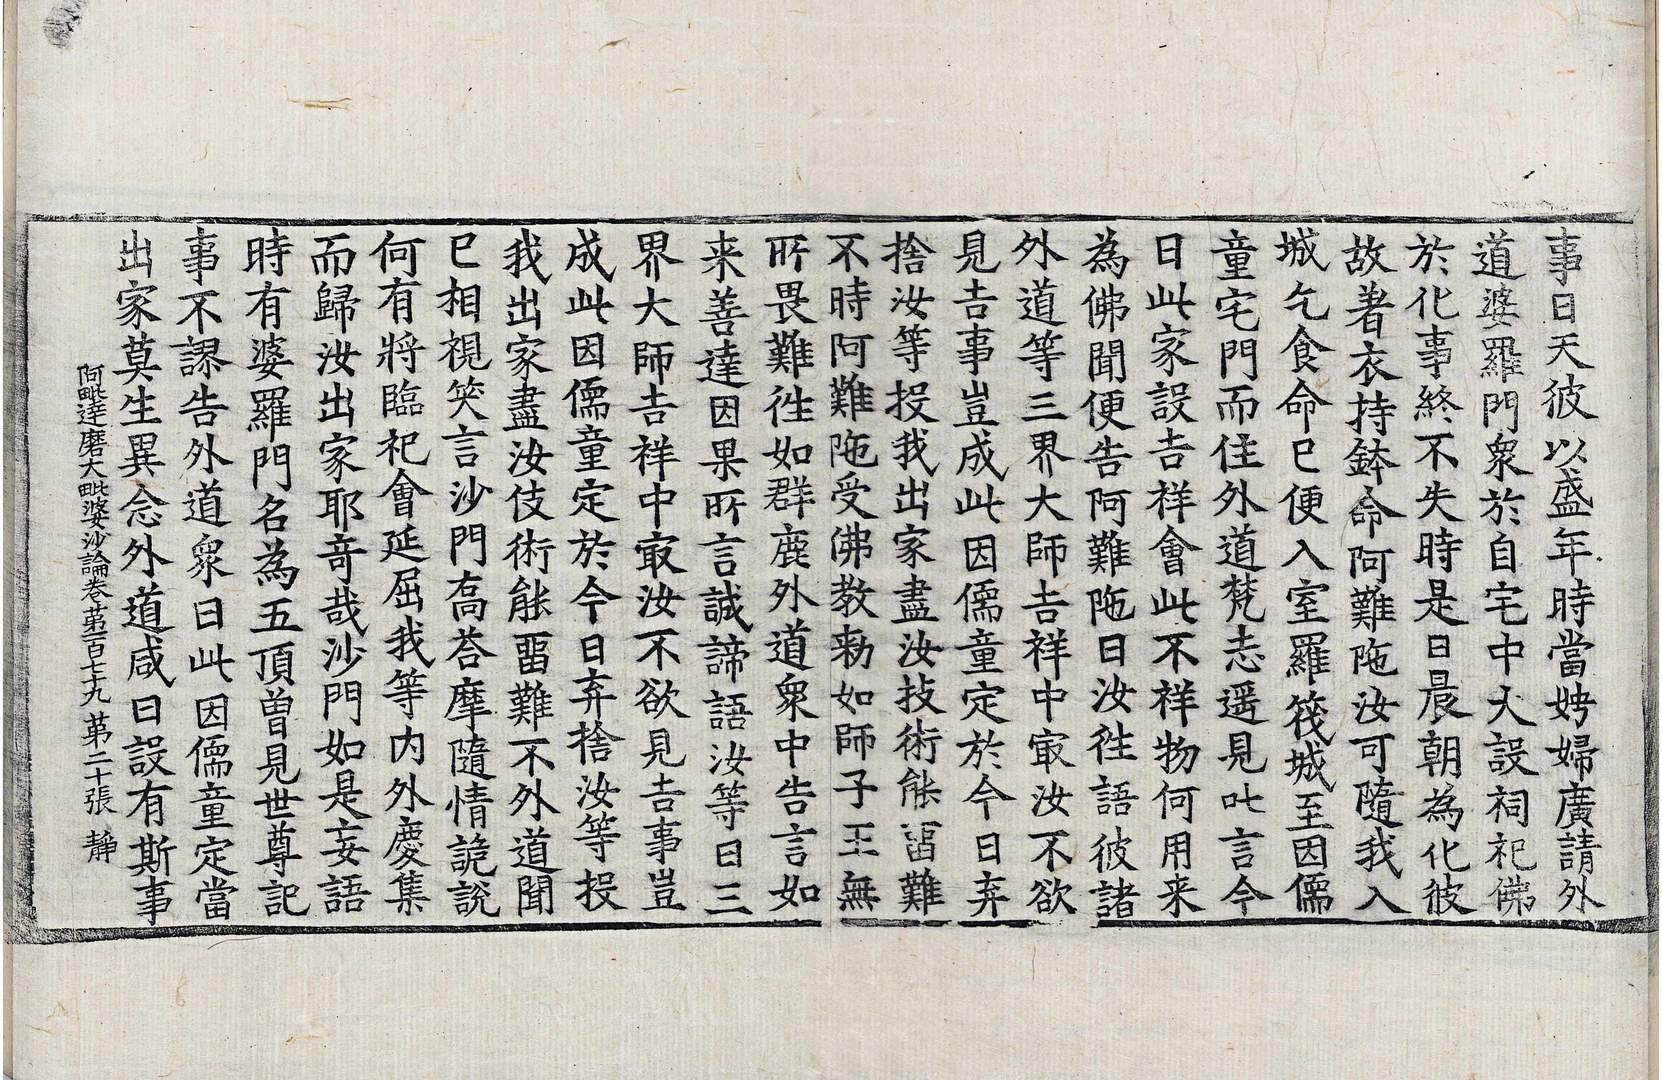 事日天彼以盛年時當娉婦廣請外
道婆羅門衆於自宅中大設祠祀佛
於化事終不失時是日晨朝為化彼
故著衣持鉢命阿難陁汝可隨我入
城乞食命已便入室羅筏城至因儒
童宅門而住外道梵志遥見叱言今
日此家設吉祥會此不祥物何用来
為佛聞便告阿難陁曰汝徃語彼諸
外道等三界大師吉祥中㝡汝不欲
見吉事豈成此因儒童定於今日弃
捨汝等投我出家盡汝技術能留難
不時阿難陁受佛教勑如師子王無
所畏難徃如群鹿外道衆中告言如
来善達因果所言誠諦語汝等曰三
界大師吉祥中㝡汝不欲見吉事豈
成此因儒童定於今日弃捨汝等投
我出家盡汝伎術能留難不外道聞
已相視笑言沙門喬荅摩隨情詭說
何有將臨祀會延屈我等内外慶集
而歸汝出家耶竒哉沙門如是妄語
時有婆羅門名為五頂曽見世尊記
事不謬告外道衆曰此因儒童定當
出家莫生異念外道咸曰設有斯事
阿毗達磨大毗婆沙論卷第一百七十九 第二十張 靜